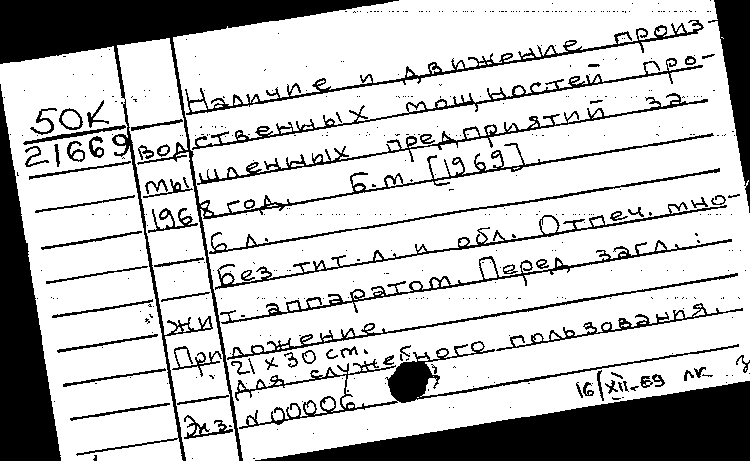 50К
21669
Наличие и движение произ-
водственных мощностей про-
мышленных предприятий за
1968 год. Б.м. [1969].
6 л.
Без тит. л. и обл. Отпеч. мно-
жит. аппаратом. Перед загл.:
Приложение.
21 х 30 cm.
Для служебного пользования.
Экз. N 00006.
16/XII-69 лк